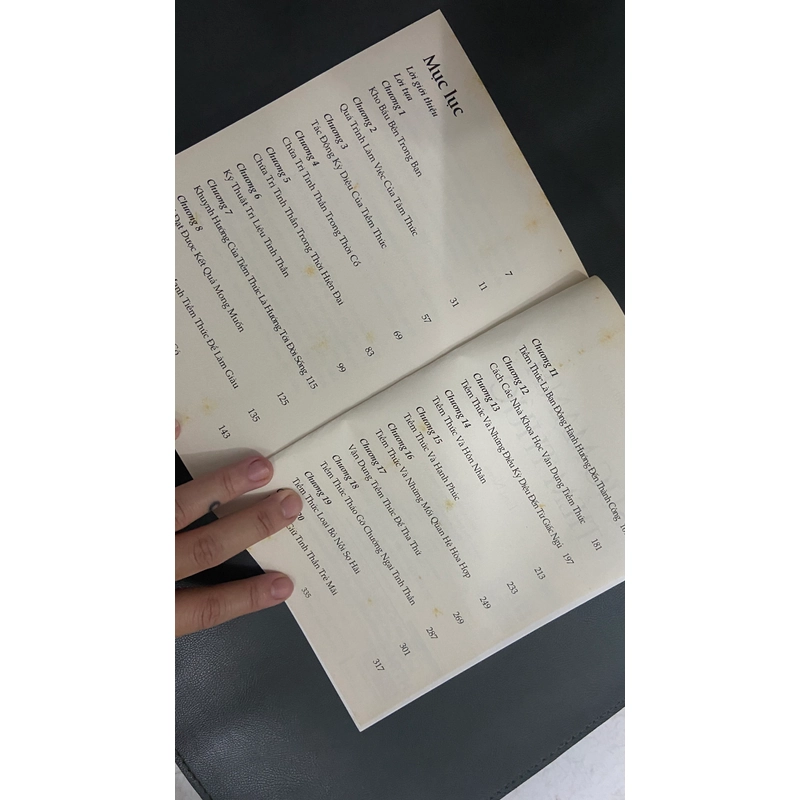 Mục lục
Lời giới thiệu
Lời tựa 7
Chương 1
Kho Báu Bên Trong Bạn 11
Chương 2
Quá Trình Làm Việc Của Tâm Thức 31
Chương 3
Tác Động Kỳ Diệu Của Tiềm Thức 57
Chương 4
Chữa Trị Tinh Thần Trong Thời Cổ 69
Chương 5
Chữa Trị Tinh Thần Trong Thời Hiện Đại 83
Chương 6
Kỹ Thuật Trị Liệu Tinh Thần 99
Chương 7
Khuynh Hướng Của Tiềm Thức Là Hướng Tới Đời Sống 115
Chương 8
Đạt Được Kết Quả Mong Muốn 125
Mạnh Tiềm Thức Để Làm Giàu 135
Có 143
Chương 11
Tiềm Thức Là Bạn Đồng Hành Hướng Đến Thành Công
Chương 12
Cách Các Nhà Khoa Học Vận Dụng Tiềm Thức 181
Chương 13
Tiềm Thức Và Những Điều Kỳ Diệu Đến Từ Giấc Ngủ 197
Chương 14
Tiềm Thức Và Hôn Nhân 213
Chương 15
Tiềm Thức Và Hạnh Phúc 233
Chương 16
Tiềm Thức Và Những Mối Quan Hệ Hòa Hợp 249
Chương 17
Vận Dụng Tiềm Thức Để Tha Thứ 269
Chương 18
Tiềm Thức Tháo Gỡ Chướng Ngại Tinh Thần 287
Chương 19
Tiềm Thức Loại Bỏ Nỗi Sợ Hãi 301
20
Giữ Tinh Thần Trẻ Mãi 317
335